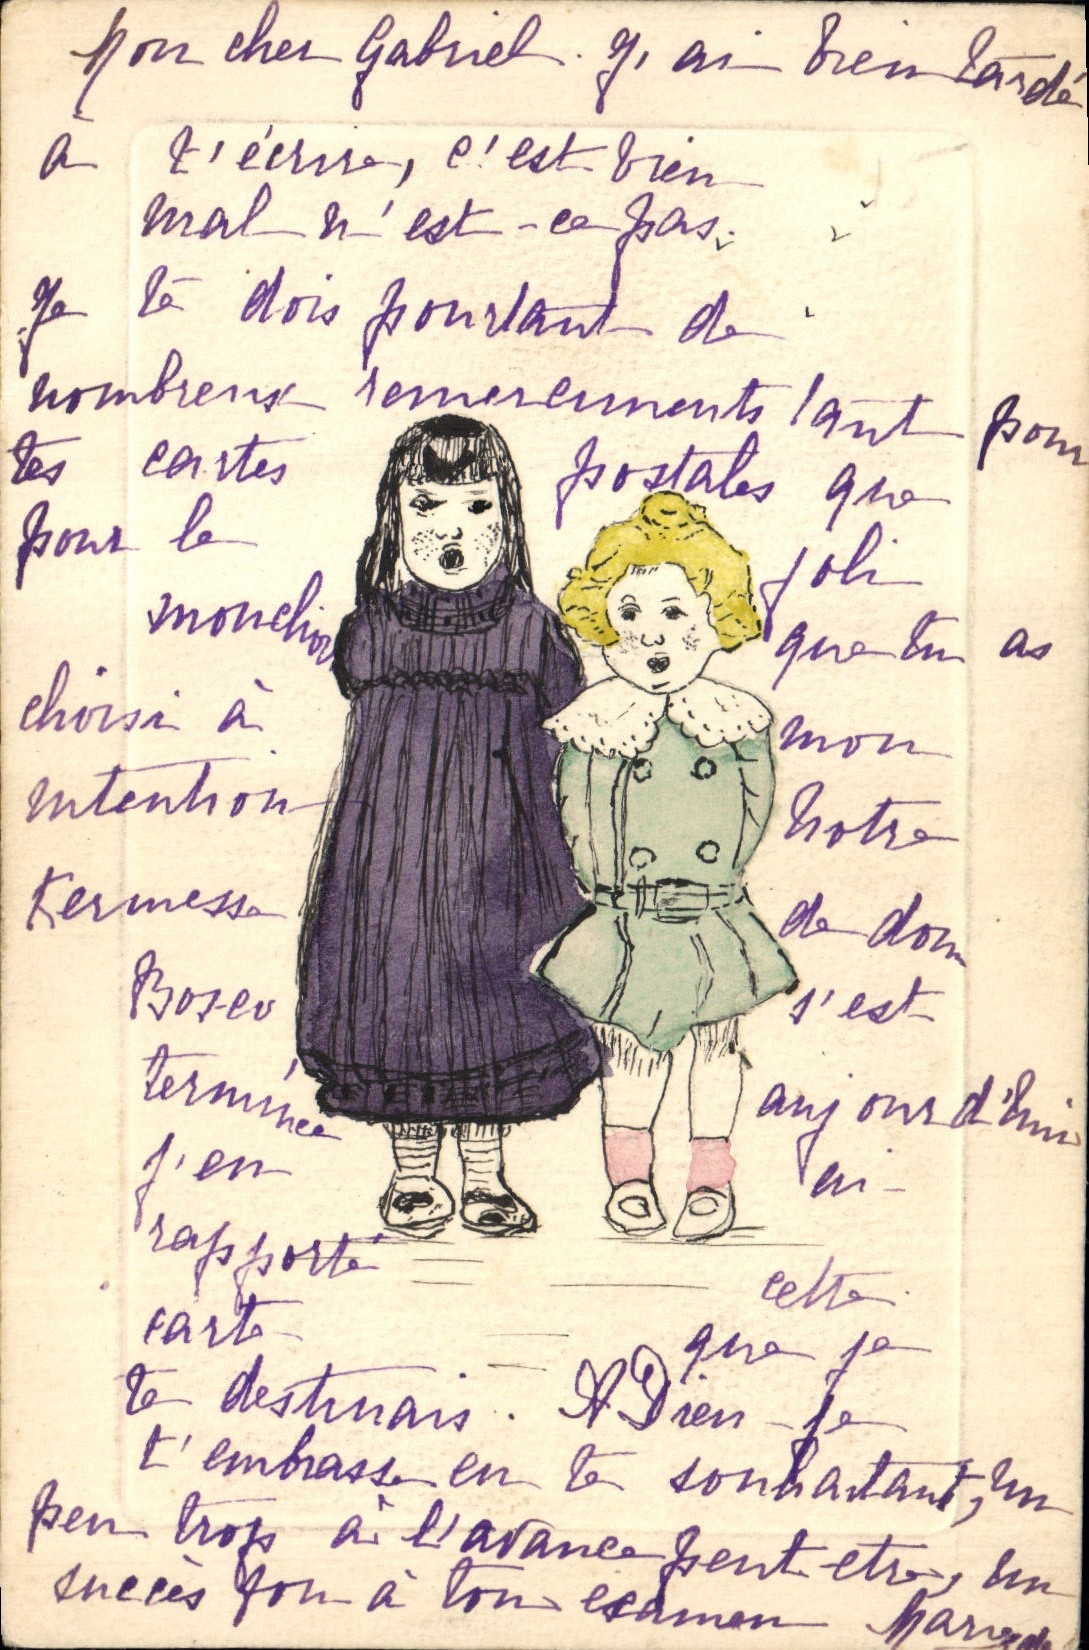 Mon cher Gabriel. J'ai bien tardé
à t'écrire, c'est bien
mal n'est-ce pas.
Je te dois pourtant de
nombreux remerciements tant pour
tes cartes postales que
pour le joli
mouchoir que tu as
choisi à mon
intention Notre
Kermesse de dom
Bosco s'est
terminée aujourd'hui
j'en ai
rapporté cette
carte que je
te destinais. A Dieu je
t'embrasse en te souhaitant, un
peu trop à l'avance peut-etre, un
succès fou à ton examen